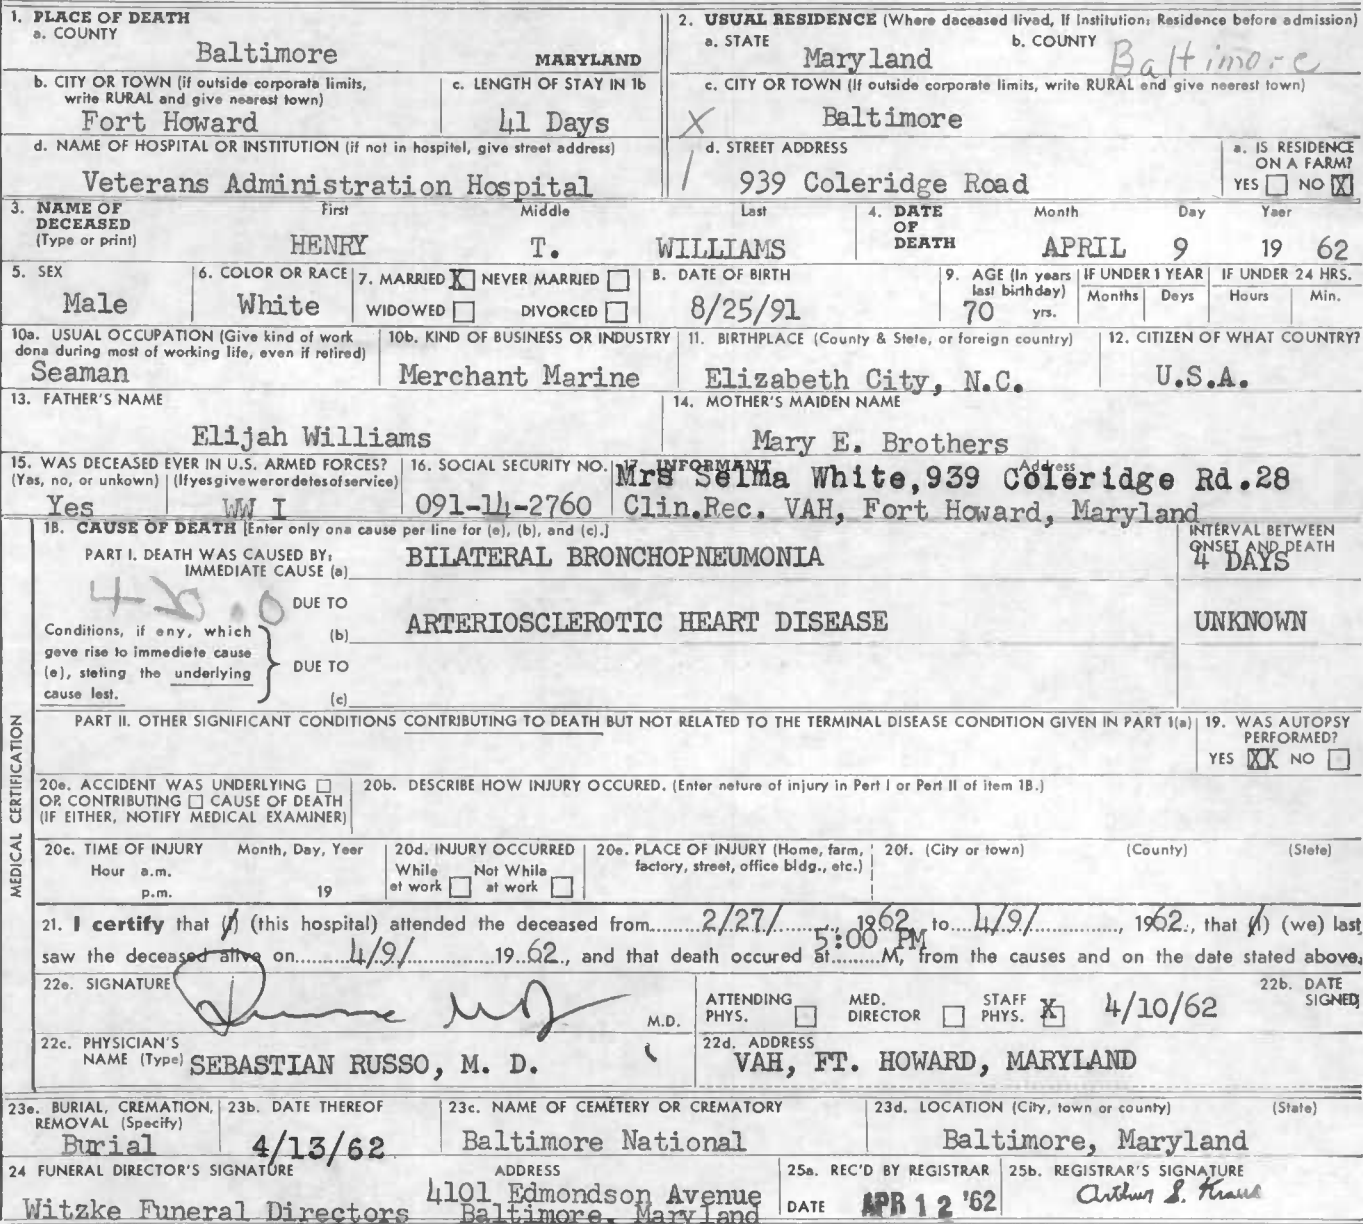 1. PLACE OF DEATH
a. COUNTY
Baltimore MARYLAND
2. USUAL RESIDENCE (Where daceased livad, If Institution: Residence before admission)
a. STATE b. COUNTY
Maryland Baltimore
b. CITY OR TOWN (if outside corporate limits, write RURAL and give nearest town)
Fort Howard
c. LENGTH OF STAY IN 1b
41 Days
c. CITY OR TOWN (If outside corporate limits, write RURAL end give neerest town)
X Baltimore
d. NAME OF HOSPITAL OR INSTITUTION (if not in hospitel, give street address)
Veterans Administration Hospital
d. STREET ADDRESS
939 Coleridge Road
a. IS RESIDENCE
ON A FARM?
YES NO X
3. NAME OF
DECEASED
(Type or print)
First Middle Last
HENRY T. WILLIAMS
4. DATE
OF
DEATH
Month Day Yaer
APRIL 9 19 62
5. SEX
Male
6. COLOR OR RACE
White
7. MARRIED X NEVER MARRIED
WIDOWED DIVORCED
8. DATE OF BIRTH
8/25/91
9. AGE (In years
last birthday)
70 yrs.
IF UNDER 1 YEAR
Months Deys
IF UNDER 24 HRS.
Hours Min.
10a. USUAL OCCUPATION (Give kind of work
dona during most of working life, even if retired)
Seaman
10b. KIND OF BUSINESS OR INDUSTRY
Merchant Marine
11. BIRTHPLACE (County & Stete, or foreign country)
Elizabeth City, N.C.
12. CITIZEN OF WHAT COUNTRY?
U.S.A.
13. FATHER'S NAME
Elijah Williams
14. MOTHER'S MAIDEN NAME
Mary E. Brothers
15. WAS DECEASED EVER IN U.S. ARMED FORCES?
(Yas, no, or unkown) (Ifyesgivewerordetesofservice)
Yes WW I
16. SOCIAL SECURITY NO.
091-14-2760
17. INFORMANT Address
Mrs Selma White,939 Coleridge Rd.28
Clin.Rec. VAH, Fort Howard, Maryland
MEDICAL CERTIFICATION
18. CAUSE OF DEATH [Enter only ona cause per line for (e), (b), and (c).]
INTERVAL BETWEEN
ONSET AND DEATH
PART I. DEATH WAS CAUSED BY:
IMMEDIATE CAUSE (a) BILATERAL BRONCHOPNEUMONIA 4 DAYS
420.0
DUE TO
(b) ARTERIOSCLEROTIC HEART DISEASE UNKNOWN
Conditions, if eny, which
geve rise to immediete cause
(e), steting the underlying
cause lest.
DUE TO
(c)
PART II. OTHER SIGNIFICANT CONDITIONS CONTRIBUTING TO DEATH BUT NOT RELATED TO THE TERMINAL DISEASE CONDITION GIVEN IN PART 1(a)
19. WAS AUTOPSY
PERFORMED?
YES XX NO
20e. ACCIDENT WAS UNDERLYING
OR CONTRIBUTING CAUSE OF DEATH
(IF EITHER, NOTIFY MEDICAL EXAMINER)
20b. DESCRIBE HOW INJURY OCCURED. (Enter neture of injury in Pert I or Pert II of item 1B.)
20c. TIME OF INJURY Month, Day, Yeer
Hour a.m.
p.m. 19
20d. INJURY OCCURRED
While Not Whila
et work at work
20e. PLACE OF INJURY (Home, farm,
factory, street, office bldg., etc.)
20f. (City or town) (County) (Stete)
21. I certify that (I) (this hospital) attended the deceased from 2/27/, 1962 to 4/9/, 1962, that (I) (we) last
saw the deceased alive on 4/9/ 19 62, and that death occured at 5:00 PM M, from the causes and on the date stated above.
22e. SIGNATURE
M.D.
ATTENDING
PHYS.
MED.
DIRECTOR
STAFF
PHYS. X
22b. DATE
SIGNED
4/10/62
22c. PHYSICIAN'S
NAME (Type) SEBASTIAN RUSSO, M. D.
22d. ADDRESS
VAH, FT. HOWARD, MARYLAND
23e. BURIAL, CREMATION,
REMOVAL (Specify)
Burial
23b. DATE THEREOF
4/13/62
23c. NAME OF CEMETERY OR CREMATORY
Baltimore National
23d. LOCATION (City, town or county) (State)
Baltimore, Maryland
24 FUNERAL DIRECTOR'S SIGNATURE ADDRESS
Witzke Funeral Directors 4101 Edmondson Avenue
Baltimore, Maryland
25a. REC'D BY REGISTRAR
DATE APR 12 '62
25b. REGISTRAR'S SIGNATURE
Arthur S. Kraus